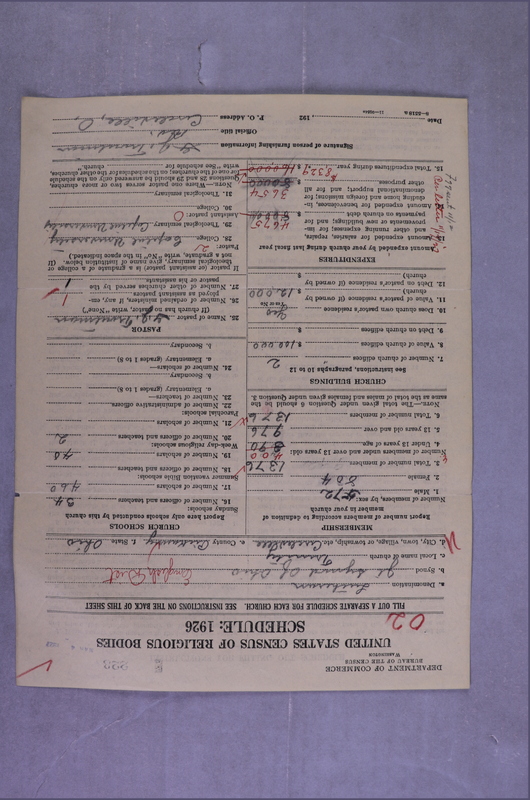 DEPARTMENT OF COMMERCE
BUREAU OF THE CENSUS
WASHINGTON
UNITED STATES CENSUS OF RELIGIOUS BODIES
SCHEDULE: 1926
02
FILL OUT A SEPARATE SCHEDULE FOR EACH CHURCH. SEE INSTRUCTIONS ON THE BACK OF THIS SHEET
a. Denomination Lutheran
b. Synod Jt. Synod Of Ohio English Dist
c. Local name of church Trinity
d. City, town, village, or township, etc. Circleville e. County Pickaway f. State Ohio
MEMBERSHIP
Report number of members according to definition of member in your church
Number of members, by sex:
1. Male 572
2. Female 804
3. Total number of members 1376
Number of members under and over 13 years old:
4. Under 13 years of age 400
5. 13 years old and over 976
6. Total number of members 1376
NOTE.—The total given under Question 6 should be the same as the total of males and females under Question 3.
CHURCH BUILDINGS
See Instructions, paragraphs 10 to 12
7. Number of church edifices 2
8. Value of church edifices $100 000
9. Debt on church edifices $
10. Does church own pastor's residence Yes
Yes or No
11. Value of pastor's residence (if owned by church) $12.000
12. Debt on pastor's residence (if owned by church) $
EXPENDITURES
Amount expended by your church during last fiscal year
Amount expended for salaries, repairs, and other running expenses; for improvements or new buildings; and for payments on church debt $4675
Amount expended for benevolences, including home and foreign missions; for denominational support; and for all other purposes $3654
15. Total expenditures during year $8329
CHURCH SCHOOLS
Report here only schools conducted by this church
Sunday schools:
16. Number of officers and teachers 34
17. Number of scholars 460
Summer vacation Bible schools:
18. Number of officers and teachers
19. Number of scholars 40
Week-day religious schools:
20. Number of officers and teachers 2
21. Number of scholars
Parochial schools:
22. Number of administrative officers
23. Number of teachers—
a. Elementary (grades 1 to 8)
b. Secondary
24. Number of scholars—
a. Elementary (grades 1 to 8)
b. Secondary
PASTOR
25. Name of pastor G.J. Troutman
(If church has no pastor, write "None")
26. Number of ordained ministers, if any, employed as assistant pastors 1
27. Number of other churches served by the pastor or his assistants
If pastor (or assistant pastor) is a graduate of a college or theological seminary, give name of institution below. (If not a graduate, write "No" in the space indicated.)
Pastor: 2
28. College Capital University
29. Theological seminary Capital University
Assistant pastor: 0
30. College
31. Theological seminary
NOTE.—Where one pastor serves two or more churches, Questions 28 and 29 need to be answered only on the schedule for one of the churches; on the schedules for the other churches, write "See schedule for church."
Signature of person furnishing information G.J. Troutman
Official title
P. O. Address Circleville, O.
Date , 192